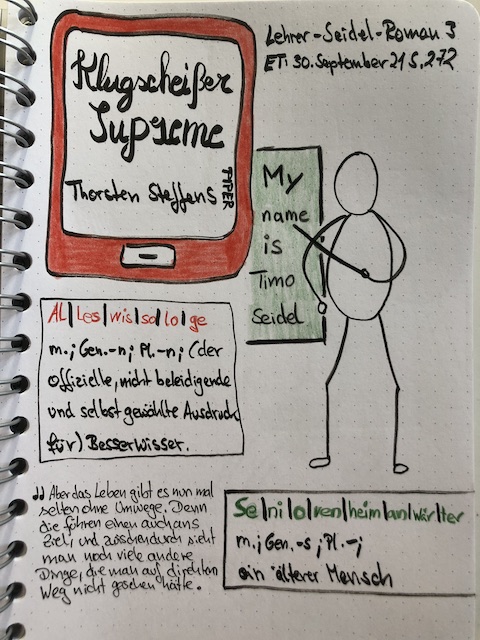 Lehrer-Seidel-Roman 3
ET: 30. September 21 S. 272
Klugscheißer
Supreme
Thorsten Steffens
PIPER
My
name
is
Timo
Seidel
Al|les|wis|so|lo|ge
m.; Gen. -n; Pl. -n; (der
offizielle, nicht beleidigende
und selbst gewählte Ausdruck
für) Besserwisser.
"Aber das Leben gibt es nun mal
selten ohne Umwege. Denn
die führen einen auch ans
Ziel, und zwischendurch sieht
man noch viele andere
Dinge, die man auf direkten
Weg nicht gesehen hätte.
Se|ni|o|ren|heim|an|wär|ter
m.; Gen. -s; Pl. -;
ein älterer Mensch